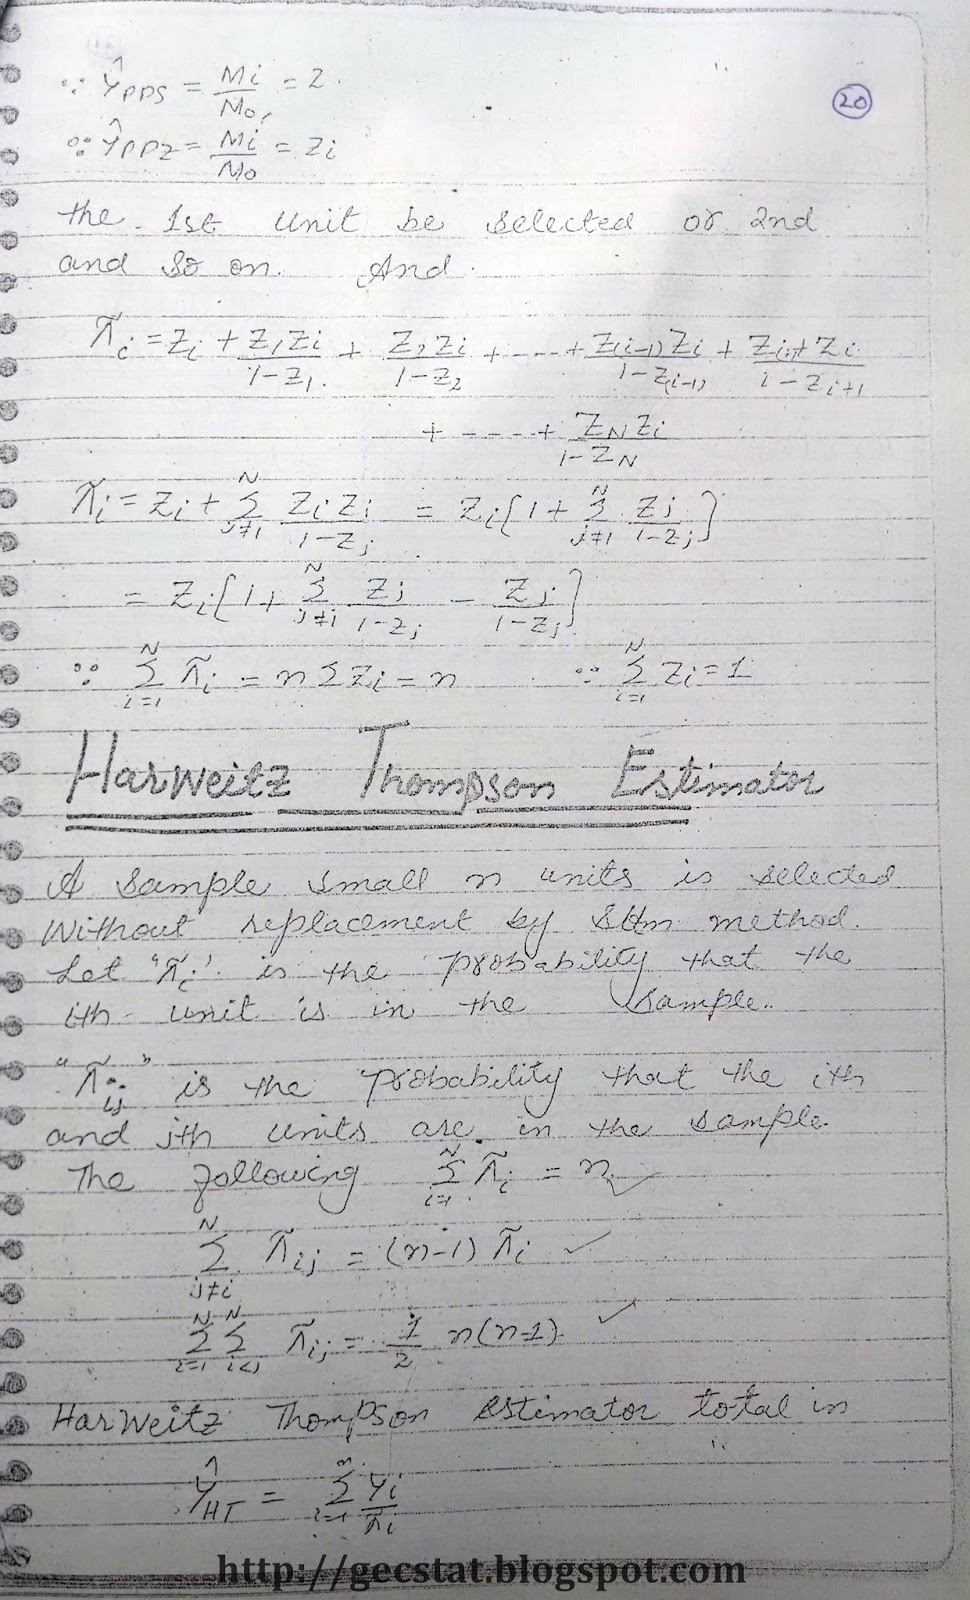 ∵ Ŷ_PPS = Mi/Mo, = Z
(20)
∵ Ŷ_PPZ = Mi/Mo = Zi
the 1st unit be selected or 2nd
and so on. And
π̃i = Zi + Z1Zi/1-Z1 + Z2Zi/1-Z2 + - --- + Z(i-1)Zi/1-Z(i-1) + Zi+Zi/i-Zi+1
+ - --- + ZNZi/1-ZN
π̃i = Zi + Σ^N_j≠1 ZiZi/1-Zj = Zi{1 + Σ^N_j≠1 Zj/1-Zj}
= Zi{1 + Σ^N_j≠i Zj/1-Zj - Zj/1-Zj}
∵ Σ^N_i=1 π̃i = nΣZi = n ∵ Σ^N_i=1 Zi = 1
HarWeitz Thompson Estimator
A sample small n units is selected
Without replacement by method.
Let "π̃i" is the probability that the
ith unit is in the sample.
"π̃ij" is the probability that the ith
and jth units are in the sample.
The following Σ^N_i=1 π̃i = n ✓
Σ^N_j≠i π̃ij = (n-1) π̃i ✓
Σ^N_i=1 Σ^N_i<j π̃ij = 1/2 n(n-1) ✓
HarWeitz Thompson Estimator total in
Ŷ_HT = Σ^n_i=1 Yi/πi
http://gecstat.blogspot.com